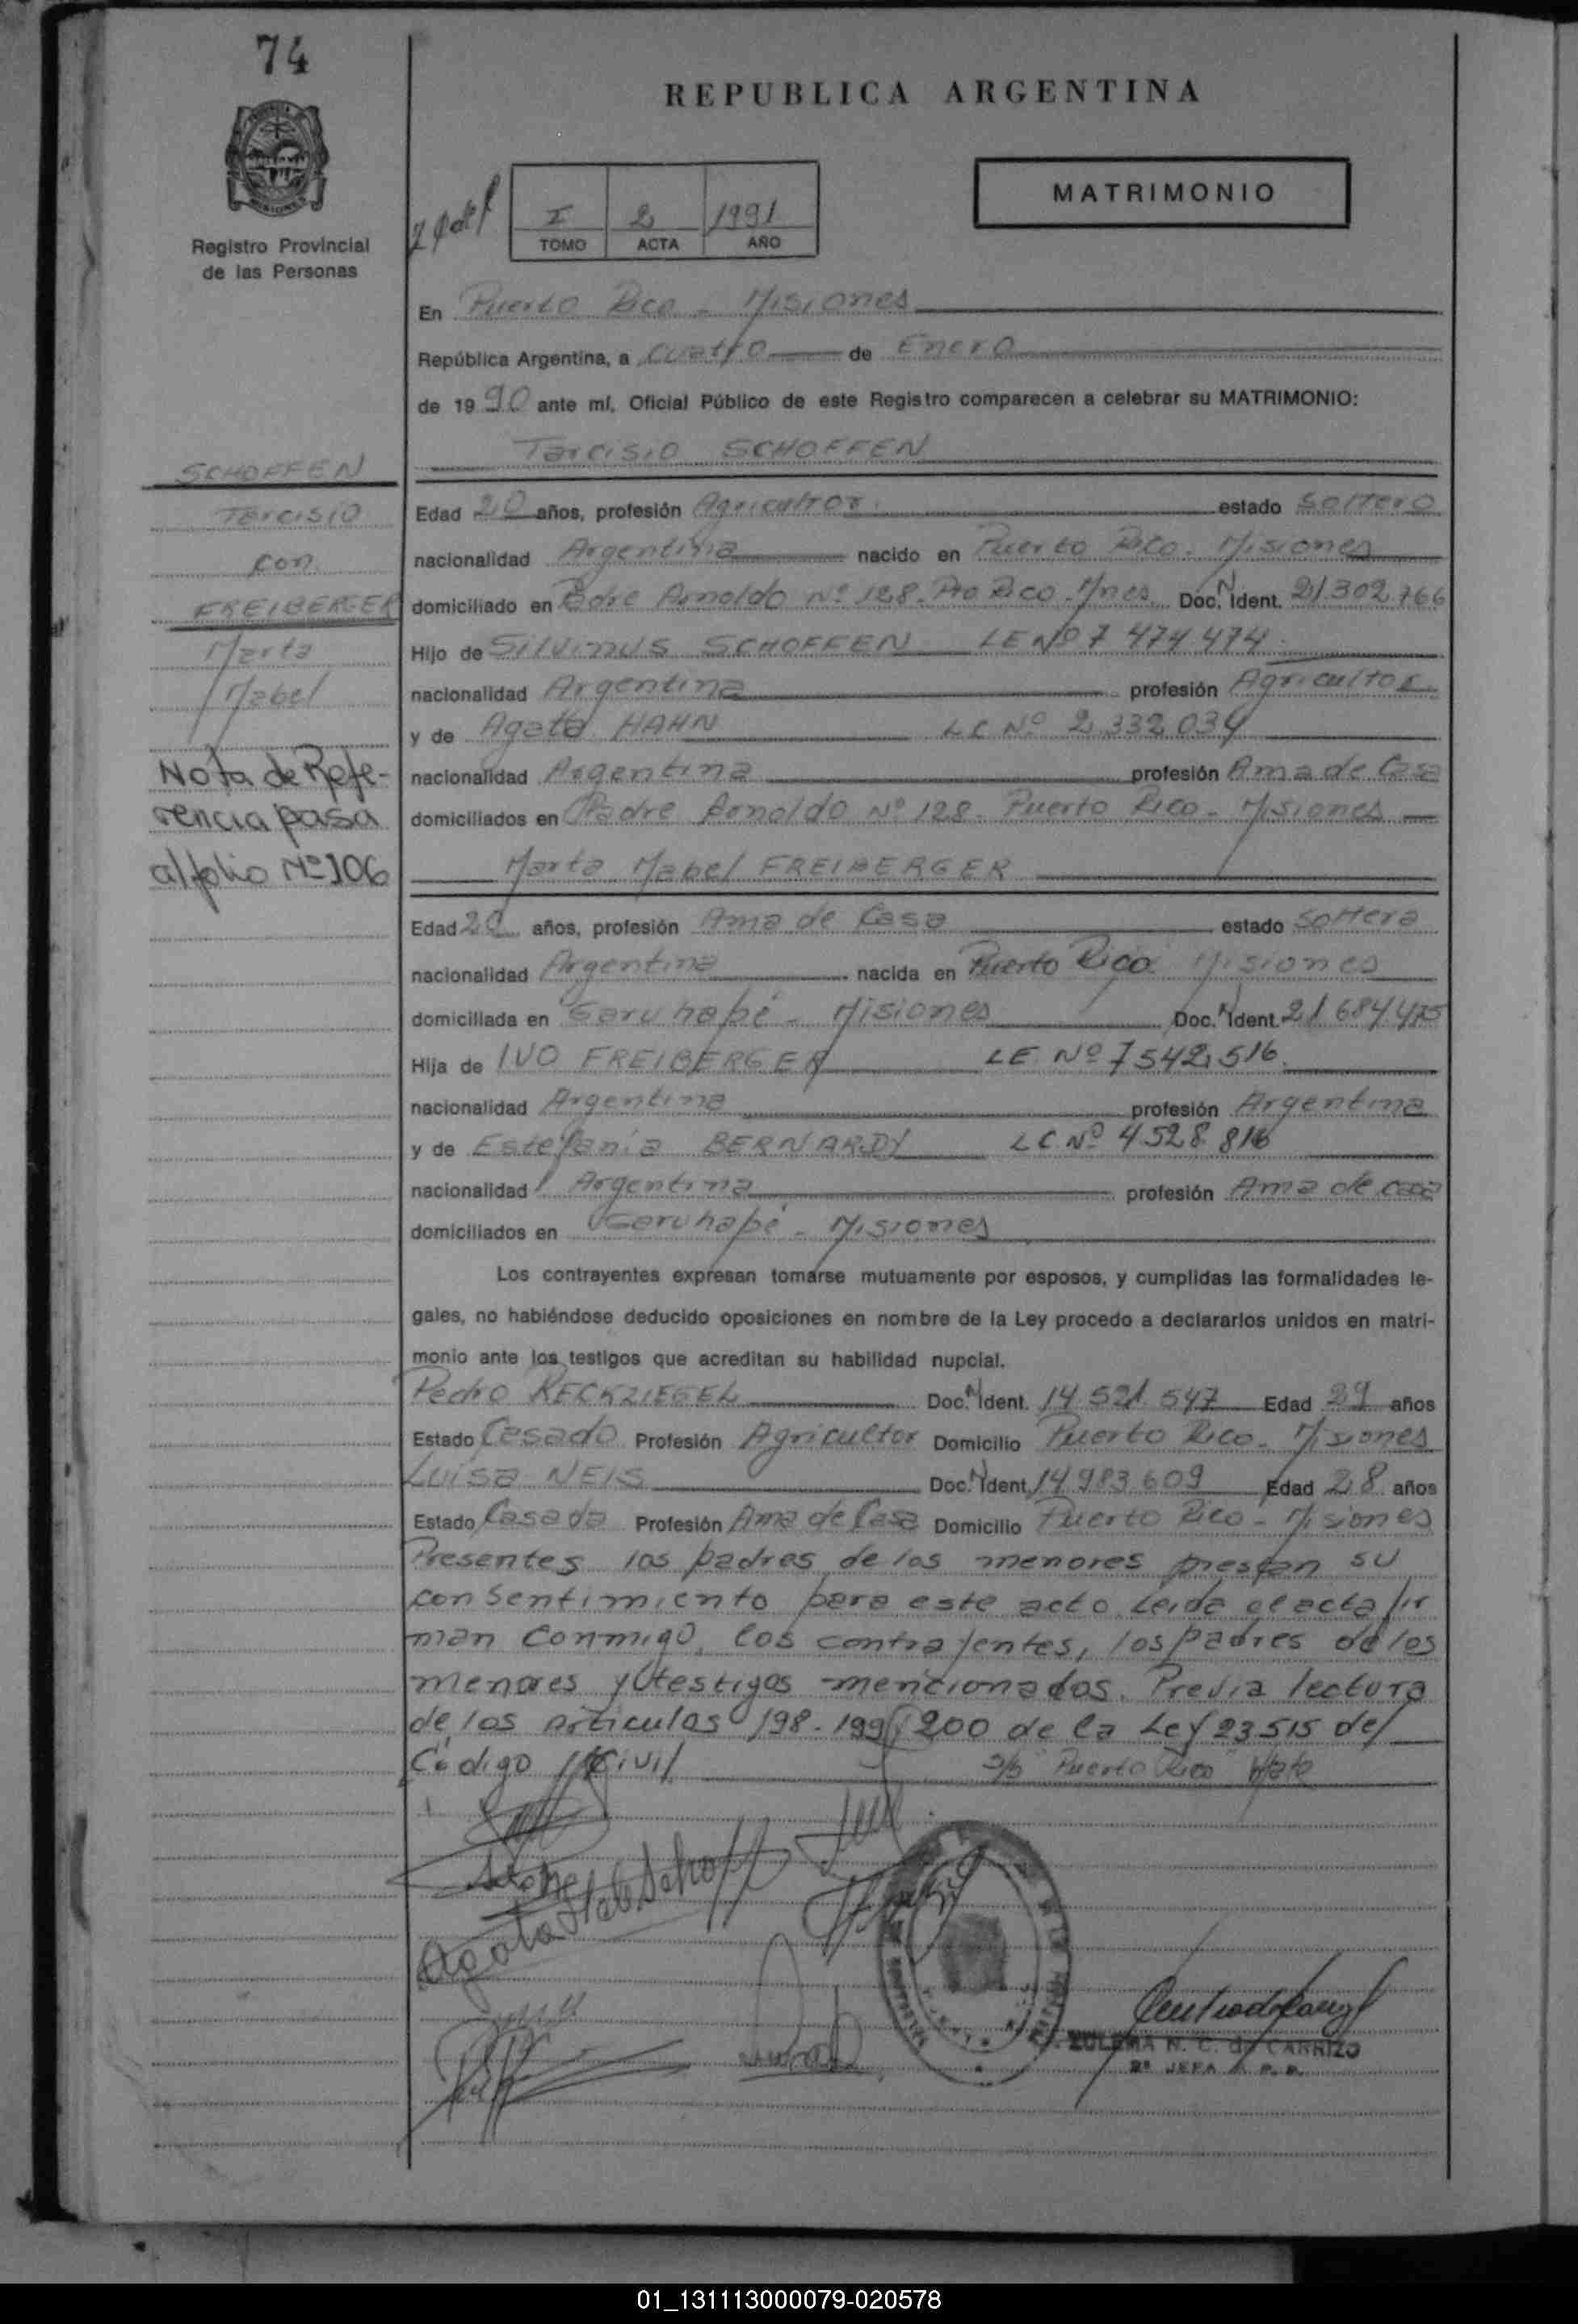 74
REPUBLICA ARGENTINA
MATRIMONIO
I 2 1991
TOMO ACTA AÑO
Registro Provincial
de las Personas
En Puerto Rico - Misiones
República Argentina, a cuatro de Enero
de 1990 ante mí, Oficial Público de este Registro comparecen a celebrar su MATRIMONIO:
Tarcisio SCHOFFEN
SCHOFFEN
Tarcisio
con
FREIBERGER
Marta
Mabel
Nota de Refe-
rencia pasa
al folio Nº 106
Edad 20 años, profesión Agricultor. estado soltero
nacionalidad Argentina nacido en Puerto Rico. Misiones
domiciliado en Padre Arnoldo Nº 128. Pto Rico. Mnes Doc. N Ident. 21.302.766
Hijo de Silvinus SCHOFFEN LE Nº 7 474.474.
nacionalidad Argentina profesión Agricultor
y de Agata HAHN LC Nº 2.332.034
nacionalidad Argentina profesión Ama de Casa
domiciliados en Padre Arnoldo Nº 128. Puerto Rico - Misiones
Marta Mabel FREIBERGER
Edad 20 años, profesión Ama de Casa estado soltera
nacionalidad Argentina nacida en Puerto Rico Misiones
domiciliada en Garuhapé - Misiones Doc. N Ident. 21 684.475
Hija de IVO FREIBERGER LE Nº 7542.516.
nacionalidad Argentina profesión Argentina
y de Estefania BERNARDY LC Nº 4.528 816
nacionalidad Argentina profesión Ama de casa
domiciliados en Garuhapé - Misiones
Los contrayentes expresan tomarse mutuamente por esposos, y cumplidas las formalidades le-
gales, no habiéndose deducido oposiciones en nombre de la Ley procedo a declararlos unidos en matri-
monio ante los testigos que acreditan su habilidad nupcial.
Pedro RECKZIEGEL Doc. N Ident. 14.521.547 Edad 29 años
Estado Casado Profesión Agricultor Domicilio Puerto Rico - Misiones
Luisa NEIS Doc. N Ident. 14.983.609 Edad 28 años
Estado Casada Profesión Ama de Casa Domicilio Puerto Rico - Misiones
Presentes los padres de los menores prestan su
consentimiento para este acto. Leida el acta fir
man conmigo, los contrayentes, los padres de los
menores y testigos mencionados. Previa lectura
de los articulos 198-199 y 200 de la Ley 23.515 del
Código Civil s/b "Puerto Rico" Vale
Agata H de Schoff
ZULEMA N. C. de CARRIZO
2ª JEFA R. P. P.
01_131113000079-020578